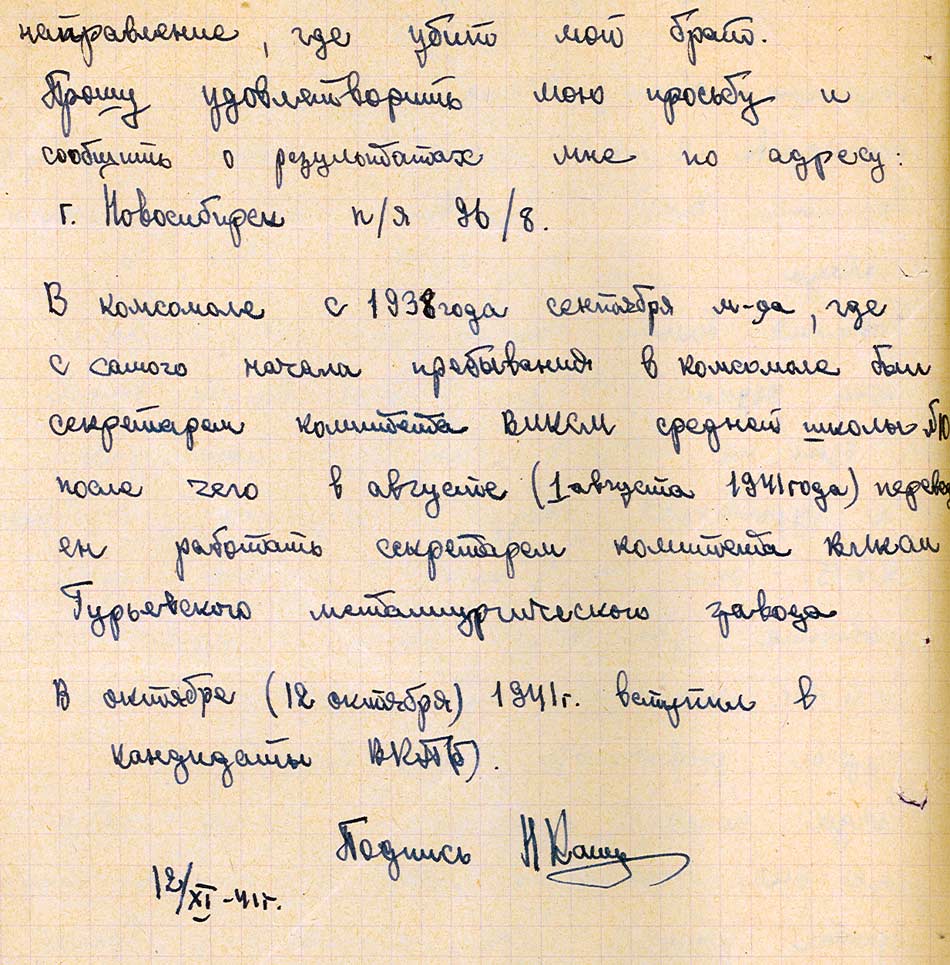 направление, где убит мой брат.
Прошу удовлетворить мою просьбу и
сообщить о результатах мне по адресу:
г. Новосибирск п/я 96/8.
В комсомоле с 1938 года сентября м-ца, где
с самого начала пребывания в комсомоле был
секретарем комитета ВЛКСМ средней школы №10
после чего в августе (1 августа 1941 года) перевед
ен работать секретарем комитета ВЛКСМ
Гурьевского металлургического завода
В октябре (12 октября) 1941г. вступил в
кандидаты ВКП(б).
Подпись Н
12/XI-41г.